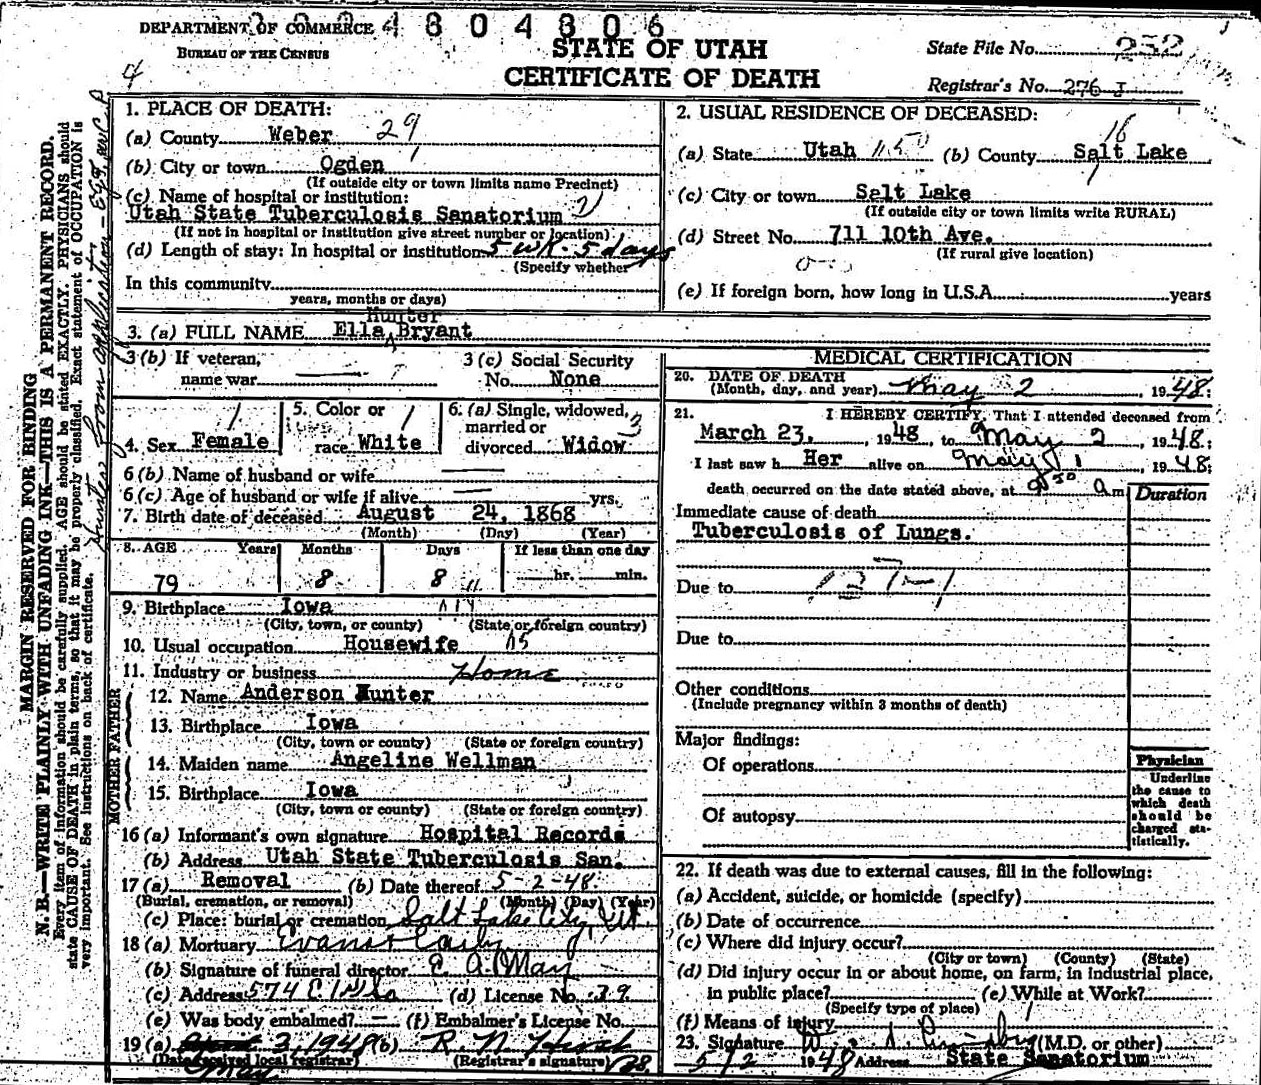 DEPARTMENT OF COMMERCE
BUREAU OF THE CENSUS
STATE OF UTAH
CERTIFICATE OF DEATH
State File No. 252
Registrar's No. 276 J
4
MARGIN RESERVED FOR BINDING
N. B.—WRITE PLAINLY WITH UNFADING INK—THIS IS A PERMANENT RECORD.
Every item of information should be carefully supplied. AGE should be stated EXACTLY. PHYSICIANS should
state CAUSE OF DEATH in plain terms, so that it may be properly classified. Exact statement of OCCUPATION is
very important. See instructions on back of certificate.
1. PLACE OF DEATH:
(a) County Weber 29
(b) City or town Ogden 1
(If outside city or town limits name Precinct)
(c) Name of hospital or institution:
Utah State Tuberculosis Sanatorium
(If not in hospital or institution give street number or location)
(d) Length of stay: In hospital or institution 5 wk. 5 days
(Specify whether
In this community
years, months or days)
2. USUAL RESIDENCE OF DECEASED:
(a) State Utah (b) County Salt Lake
18
(c) City or town Salt Lake
(If outside city or town limits write RURAL)
(d) Street No. 711 10th Ave.
(If rural give location)
(e) If foreign born, how long in U.S.A. years
Hunter
3. (a) FULL NAME Ella Bryant
3 (b) If veteran, name war
3 (c) Social Security No. None
4. Sex Female
5. Color or race White
6. (a) Single, widowed, married or divorced Widow 3
6 (b) Name of husband or wife
6 (c) Age of husband or wife if alive yrs.
7. Birth date of deceased August 24, 1868
(Month) (Day) (Year)
8. AGE Years Months Days If less than one day
79 8 8 hr. min.
9. Birthplace Iowa
(City, town, or county) (State or foreign country)
10. Usual occupation Housewife
11. Industry or business Home
FATHER
12. Name Anderson Hunter
13. Birthplace Iowa
(City, town or county) (State or foreign country)
MOTHER
14. Maiden name Angeline Wellman
15. Birthplace Iowa
(City, town or county) (State or foreign country)
16 (a) Informant's own signature Hospital Records
(b) Address Utah State Tuberculosis San.
17 (a) Removal (b) Date thereof 5-2-48.
(Burial, cremation, or removal) (Month) (Day) (Year)
(c) Place: burial or cremation Salt Lake City, Ut.
18 (a) Mortuary Evans & Early
(b) Signature of funeral director
(c) Address 574 E. (d) License No. 39
(e) Was body embalmed? — (f) Embalmer's License No.
19 (a) 3, 1948 (b)
(Date received local registrar) (Registrar's signature)
May
MEDICAL CERTIFICATION
20. DATE OF DEATH
(Month, day, and year) May 2 1948.
21. I HEREBY CERTIFY, That I attended deceased from
March 23, 1948, to May 2, 1948;
I last saw h Her alive on May 1, 1948;
death occurred on the date stated above, at 9:30 a m
Duration
Immediate cause of death
Tuberculosis of Lungs.
Due to
Due to
Other conditions
(Include pregnancy within 3 months of death)
Major findings:
Of operations
Of autopsy
Physician
Underline
the cause to
which death
should be
charged sta-
tistically.
22. If death was due to external causes, fill in the following:
(a) Accident, suicide, or homicide (specify)
(b) Date of occurrence
(c) Where did injury occur?
(City or town) (County) (State)
(d) Did injury occur in or about home, on farm, in industrial place,
in public place? (e) While at Work?
(Specify type of place)
(f) Means of injury
23. Signature (M.D. or other)
5/2 1948 Address State Sanatorium